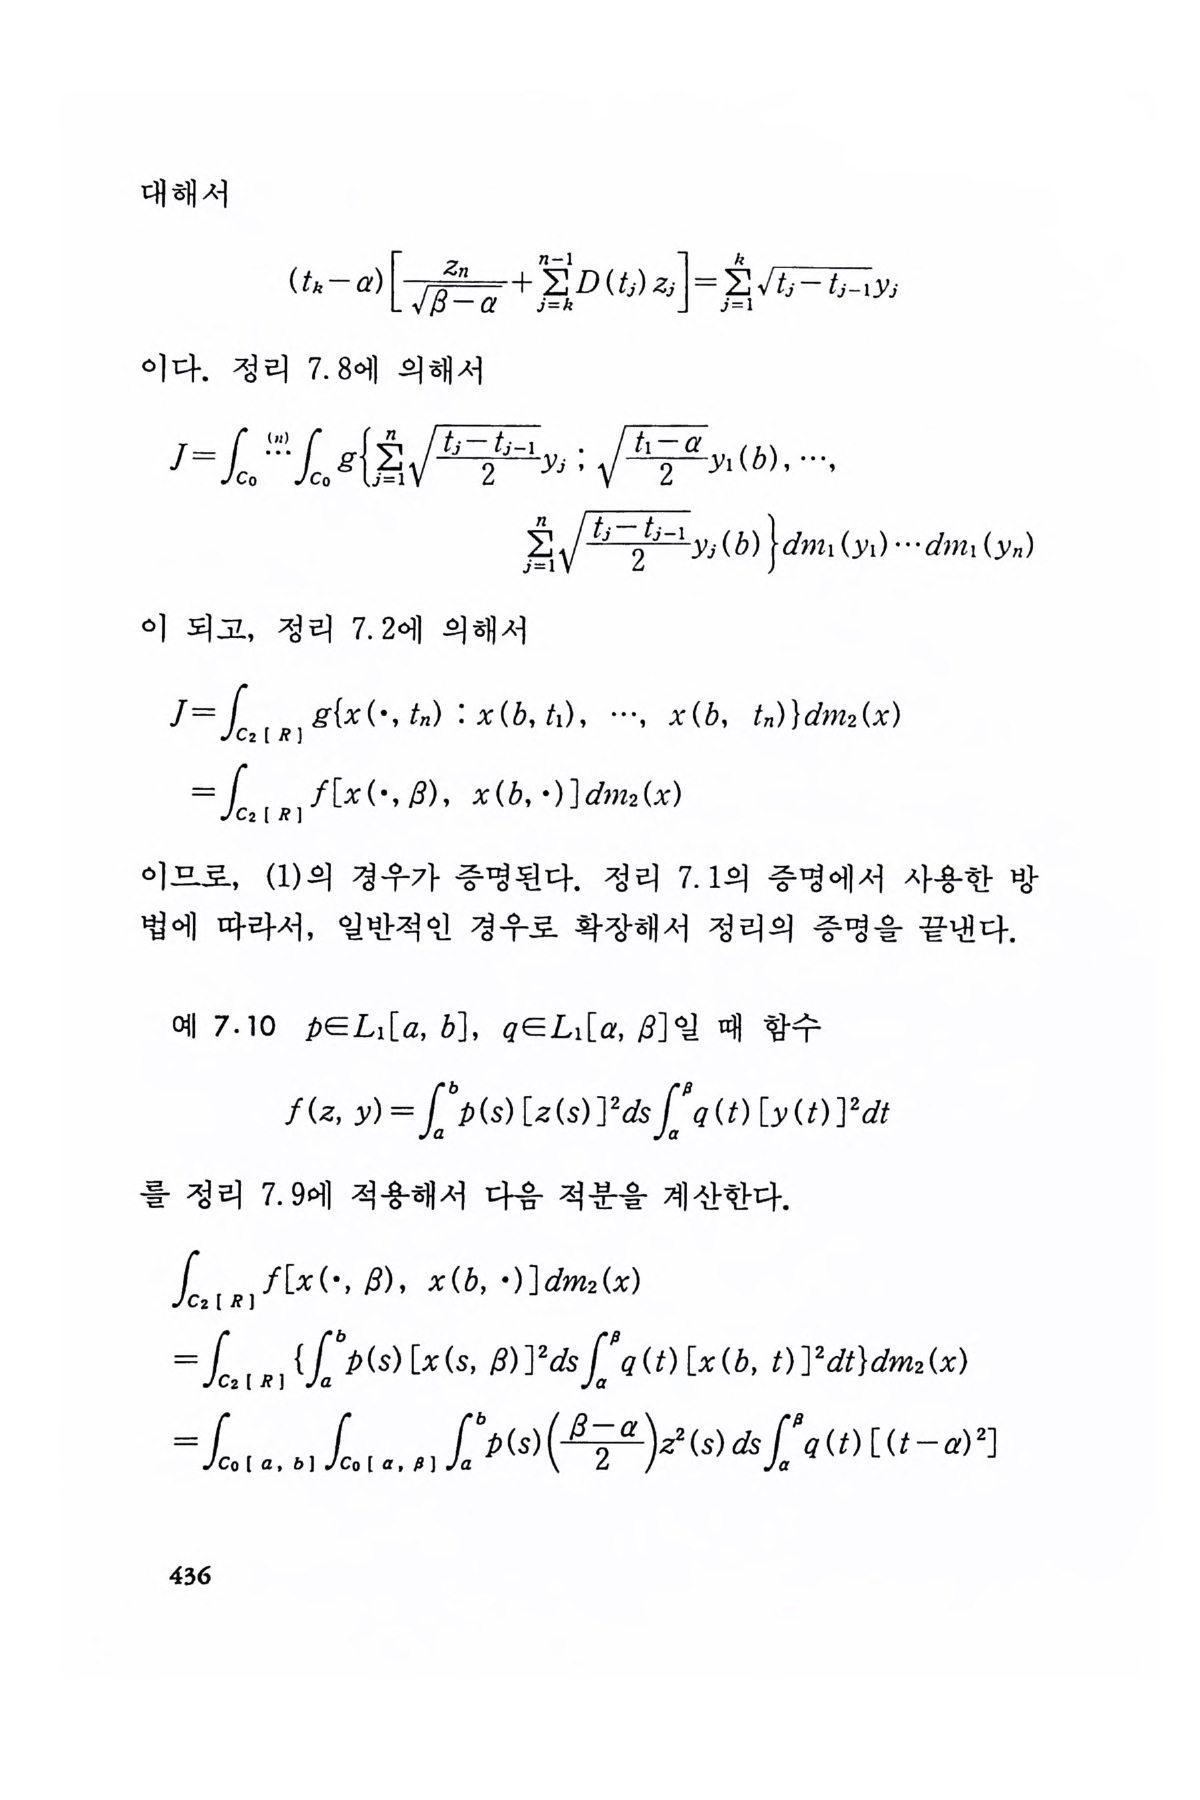 대해서
(t_k−α)[z_n/√(β−α) + Σ_{j=k}^{n−1} D(t_j) z_j] = Σ_{j=1}^{k} √(t_j−t_{j−1}) y_j
이다. 정리 7.8에 의해서
J=∫_{C₀} ⋯^{(n)} ∫_{C₀} g{Σ_{j=1}^{n} √((t_j−t_{j−1})/2) y_j ; √((t₁−α)/2) y₁(b), ⋯,
Σ_{j=1}^{n} √((t_j−t_{j−1})/2) y_j(b)} dm₁(y₁)⋯dm₁(y_n)
이 되고, 정리 7.2에 의해서
J=∫_{C₂[R]} g{x(·, t_n) : x(b, t₁), ⋯, x(b, t_n)}dm₂(x)
=∫_{C₂[R]} f[x(·, β), x(b, ·)]dm₂(x)
이므로, (1)의 경우가 증명된다. 정리 7.1의 증명에서 사용한 방
법에 따라서, 일반적인 경우로 확장해서 정리의 증명을 끝낸다.
예 7·10 p∈L₁[a, b], q∈L₁[α, β]일 때 함수
f(z, y)=∫_a^b p(s)[z(s)]²ds∫_α^β q(t)[y(t)]²dt
를 정리 7.9에 적용해서 다음 적분을 계산한다.
∫_{C₂[R]} f[x(·, β), x(b, ·)]dm₂(x)
=∫_{C₂[R]} {∫_a^b p(s)[x(s, β)]²ds∫_α^β q(t)[x(b, t)]²dt}dm₂(x)
=∫_{C₀[a, b]} ∫_{C₀[α, β]} ∫_a^b p(s)((β−α)/2)z²(s)ds∫_α^β q(t)[(t−α)²]
436